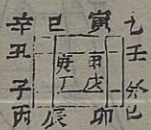 辛巳寅乙
丑庚甲壬
子丁戊癸
丙辰卯巳